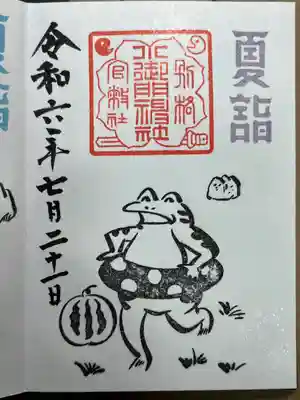 夏詣
別格
小御門神社
官幣社
令和六年七月二十一日
夏詣